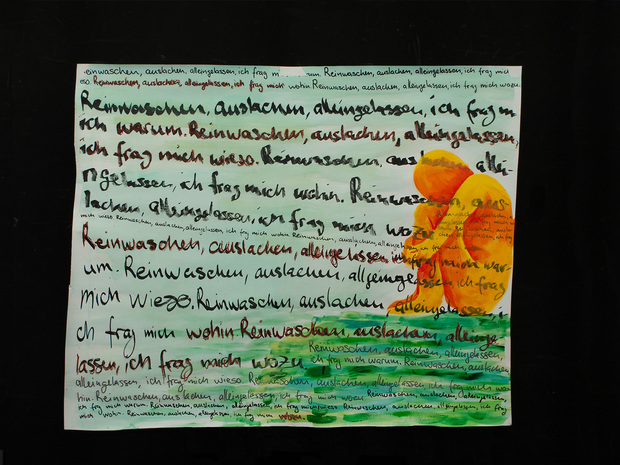 einwaschen, auslachen, alleingelassen, ich frag m Reinwaschen, auslachen, alleingelassen, ich frag mich
so. Reinwaschen, auslachen, alleingelassen, ich frag mich wohin. Reinwaschen, auslachen, alleingelassen, ich frag mich wozu.
Reinwaschen, auslachen, alleingelassen, ich frag m
ich warum. Reinwaschen, auslachen, alleingelassen,
ich frag mich wieso. Reinwaschen, auslachen, allei-
ngelassen, ich frag mich wohin. Reinwaschen, aus-
lachen, alleingelassen, ich frag mich wozu
Reinwaschen, auslachen, alleingelassen ich frag mich war-
um. Reinwaschen, auslachen, alleingelassen, ich frag
mich wieso. Reinwaschen, auslachen alleingelassen, i
ch frag mich wohin Reinwaschen, auslachen, alleinge
lassen, ich frag mich wozu.
Reinwaschen, auslachen, alleingelassen,
ich frag mich warum. Reinwaschen, auslachen,
alleingelassen, ich frag mich wieso. Reinwaschen, auslachen, alleingelassen ich frag mich wo-
hin. Reinwaschen, auslachen, alleingelassen, ich frag mich wozu. Reinwaschen, auslachen, alleingelassen,
ich frag mich warum. Reinwaschen, auslachen, alleingelassen, ich frag mich wieso. Reinwaschen, auslachen, alleingelassen, ich frag
mich wohin. Reinwaschen, auslachen, alleingelassen, ich frag mich wozu.